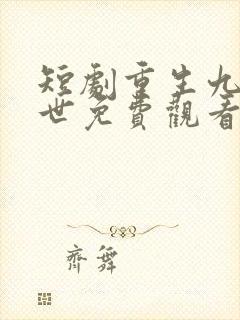 短劇重生九
世免費觀看
齊舞